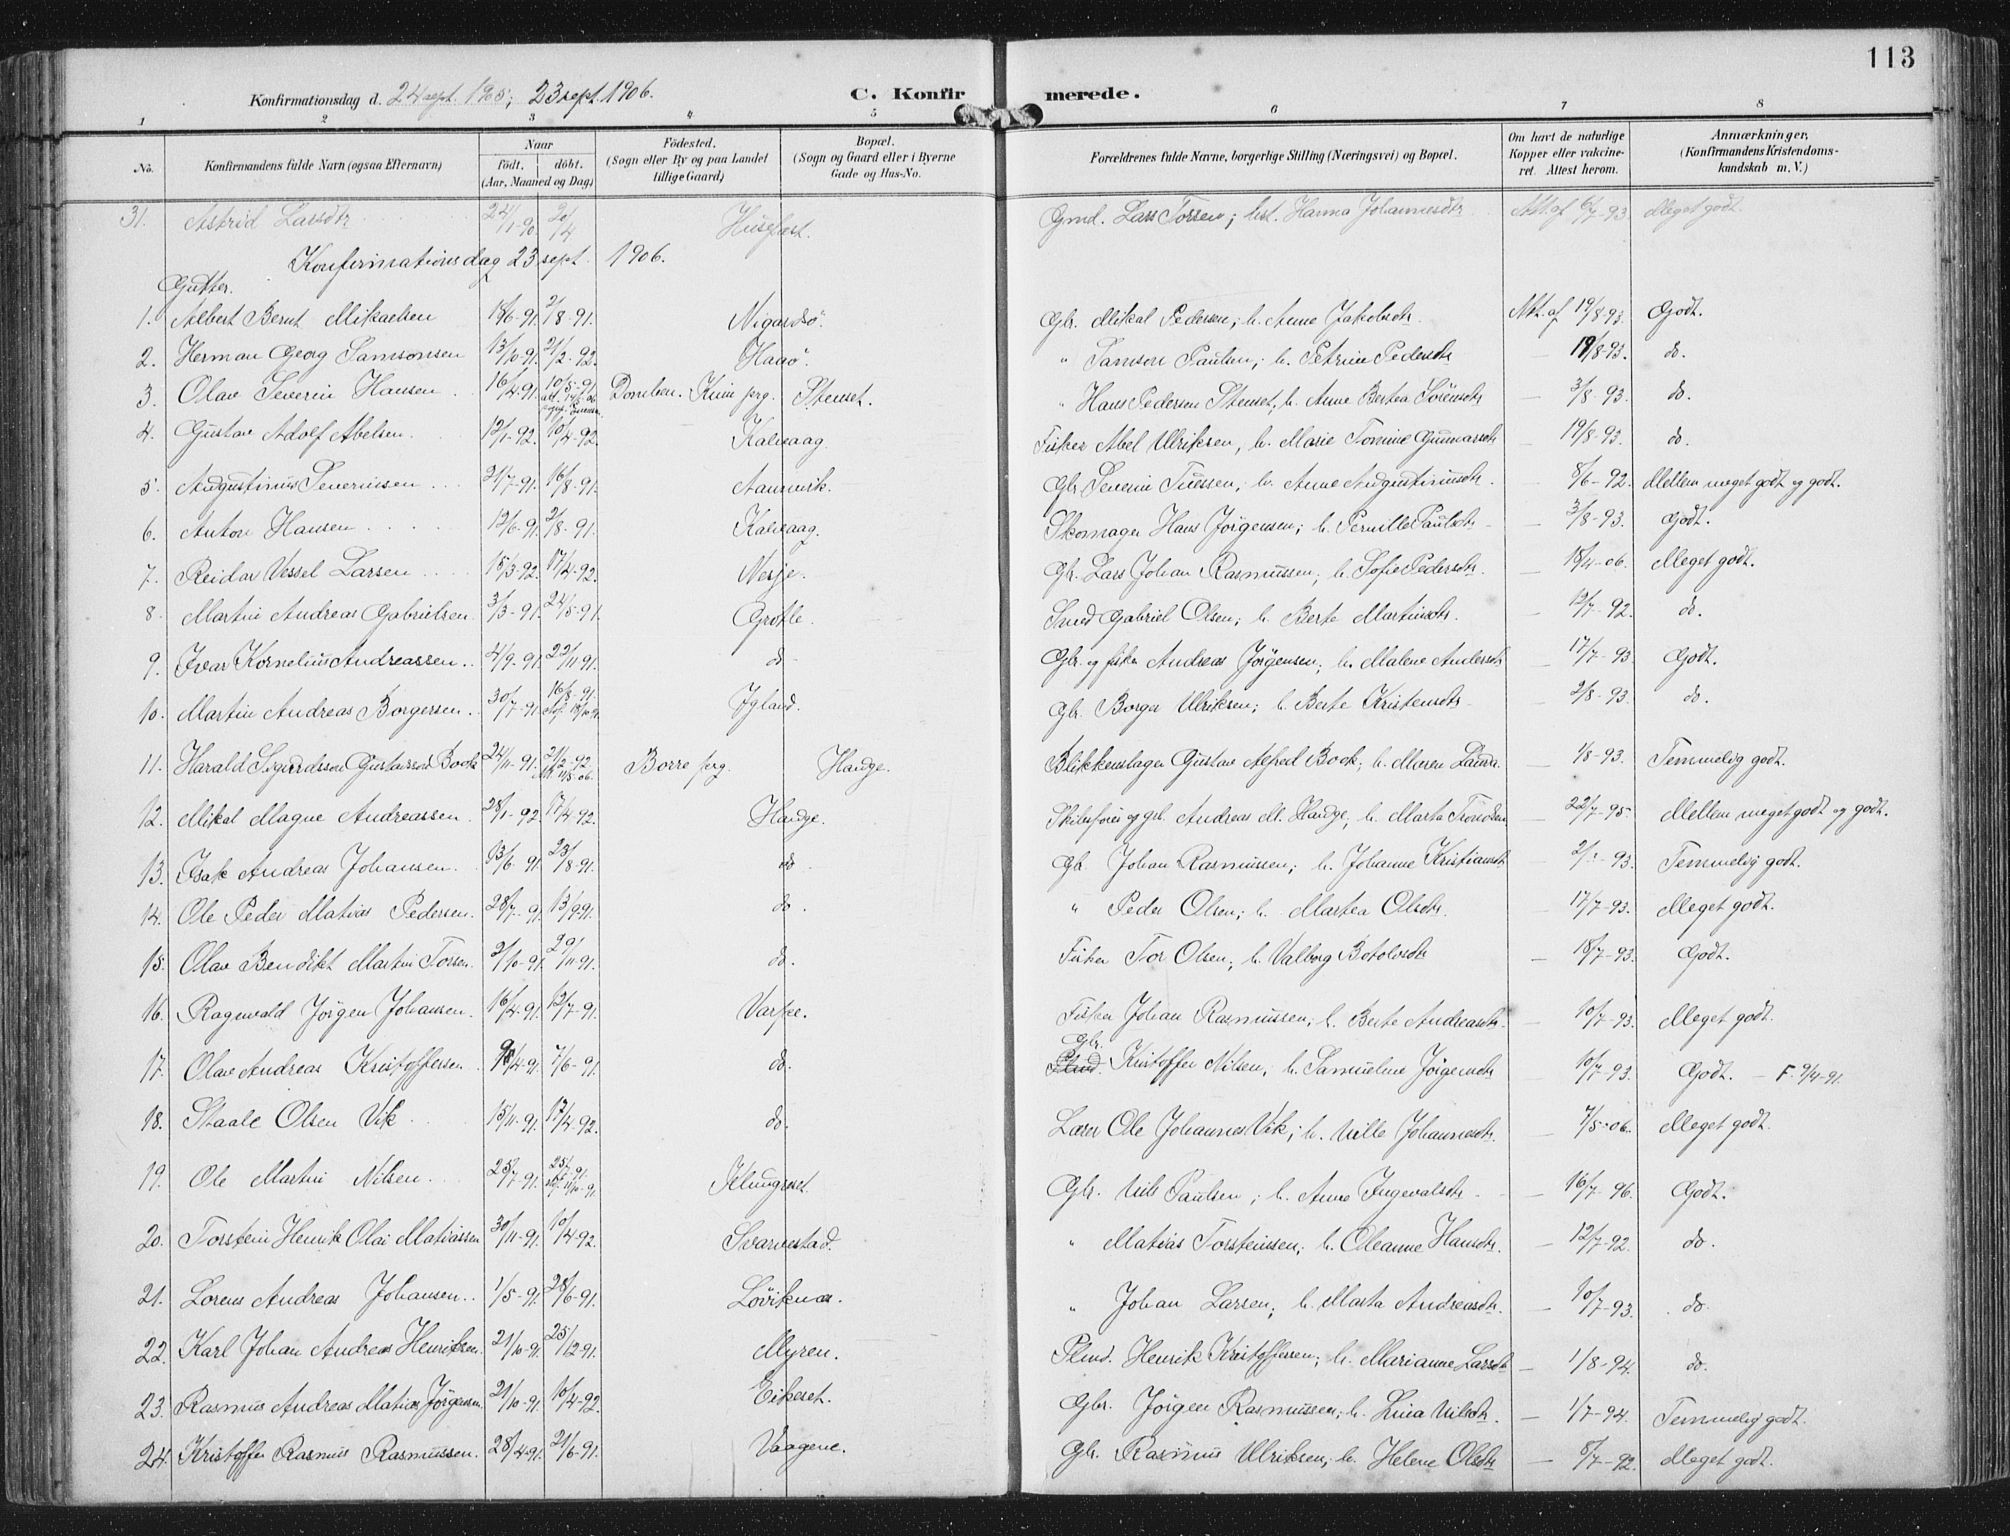 113
Konfirmationsdag d. 24 sept. 1905; 23 sept. 1906. C. Konfirmerede.
1 2 3 4 5 6 7 8
No. Konfirmandens fulde Navn (ogsaa Efternavn) Naar födt. döbt. (Aar, Maaned og Dag) Födested. (Sogn eller By og paa Landet tillige Gaard) Bopæl. (Sogn og Gaard eller i Byerne Gade og Hus-No. Forældrenes fulde Navne, borgerlige Stilling (Næringsvei) og Bopæl. Om havt de naturlige Kopper eller vakcineret. Attest herom. Anmærkninger, (Konfirmandens Kristendomskundskab m. V.)
31. Astrid Larsdtr 24/1-90 20/4 Husefæst. Gmd. Lars Torsen; hst. Hanna Johannesdtr Att. af 6/7-93. Meget godt.
Konfirmationsdag 23 sept. 1906.
Gutter.
1. Albert Bernt Mikaelsen 18/6-91. 2/8-91. Nigardsö. Gbr. Mikal Pedersen; h. Anne Jakobsdtr. Att. af 19/8-93. Godt.
2. Herman Georg Samsonsen 13/10-91. 21/2-92. Haaö. " Samson Paulsen; h. Petrine Pedersdtr — 19/8-93. do.
3. Olav Severin Hansen 16/4-91. 10/5-91. Domben. Kinn prg. Stenset. " Hans Pedersen Stenset, h. Anne Bertea Sörensdtr — 3/8-93. do.
4. Gustav Adolf Abelsen. 12/1-92. 10/4-92. Kalvaag. Fisker Abel Ulriksen, h. Marie Tomine Gunnarsdtr — 19/8-93. do.
5. Augustinus Severinsen 21/7-91. 16/8-91. Aannevik. Gbr. Severin Tuessen; h. Anne Augustinusdtr. — 8/6-92. Mellem meget godt og godt.
6. Anton Hansen 12/6-91. 2/8-91. Kalvaag. Skomager Hans Jörgensen; h. Pernille Paulsdtr — 3/8-93. Godt.
7. Reidar Vessel Larsen 15/3-92. 17/4-92. Nesje. Gbr. Lars Johan Rasmussen; h. Sofie Pedersdtr. — 18/4-06. Meget godt.
8. Martin Andreas Gabrielsen 3/3-91. 24/5-91. Grotle. Smed Gabriel Olsen; h. Berte Martinsdtr. — 12/7-92. do.
9. Ivar Kornelius Andreassen 4/9-91. 22/11-91. do. Gbr. og fisker Andreas Jörgensen; h. Malene Andersdtr — 17/7-93. Godt.
10. Martin Andreas Borgersen 30/7-91. 16/8-91. Igland. Gbr. Borger Ulriksen; h. Berte Kristensdtr — 2/8-93. do.
11. Harald Sigurdsson Gustavson Book 24/11-91. 21/2-92. Borre prg. Hauge. Blikkenslager Gustav Alfred Book; h. Maren Laura. — 1/8-93. Temmelig godt.
12. Mikal Magne Andreassen 28/1-92. 17/4-92. Hauge. Skibsfører og gbr. Andreas M. Hauge, h. Marta — 22/7-95. Mellem meget godt og godt.
13. Isak Andreas Johansen. 13/6-91. 23/8-91. do. Gbr. Johan Rasmussen; h. Johanne Kristiansdtr — -93. Temmelig godt.
14. Ole Peder Matias Pedersen. 28/7-91. 13/9-91. do. " Peder Olsen; h. Martea Olsdtr. — 17/7-93. Meget godt.
15. Olav Bendikt Martin Torsen 2/10-91. 29/11-91. do. Fisker Tor Olsen; h. Valborg Botolvsdtr — 18/7-93. Godt.
16. Ragnvald Jörgen Johansen. 16/4-91. 12/7-91. Varpe. Fisker Johan Rasmussen; h. Berte Andreasdtr. — 10/7-93. Meget godt.
17. Olav Andreas Kristoffersen 9/4-91. 7/6-91. do. Gbr. Kristoffer Nilsen, h. Samueline Jörgensdtr — 10/7-93. Godt. — F. 9/4-91.
18. Staale Olsen Vik 15/11-91. 17/4-92. do. Lærer Ole Johannes Vik; h. Nille Johannesdtr. — 7/5-06. Meget godt.
19. Ole Martin Nilsen 25/7-91. Klungreset. Gbr. Nils Paulsen; h. Anne Ingevalsdtr. — 16/7-96. Godt.
20. Torstein Henrik Olai Matiassen 30/11-91. 10/4-92. Svarvestad. " Matias Torsteinssen; h. Oleanne Hansdtr. — 12/7-92. do.
21. Lorens Andreas Johansen 1/5-91. 28/6-91. Löviknæs. " Johan Larsen; h. Marta Andreasdtr. — 10/7-93. do.
22. Karl Johan Andreas Henriksen 21/10-91. 25/12-91. Myren. Plmd. Henrik Kristoffersen; h. Marianne Larsdtr — 1/8-94. do.
23. Rasmus Andreas Matias Jörgensen. 21/10-91. 10/4-92. Eikeset. Gbr. Jörgen Rasmussen; h. Lina Nilsdtr. — 1/7-94. Temmelig godt.
24. Kristoffer Rasmus Rasmussen. 28/4-91. 21/6-91. Vaagene. Gbr. Rasmus Ulriksen; h. Helene Olsdtr — 8/7-92. Meget godt.